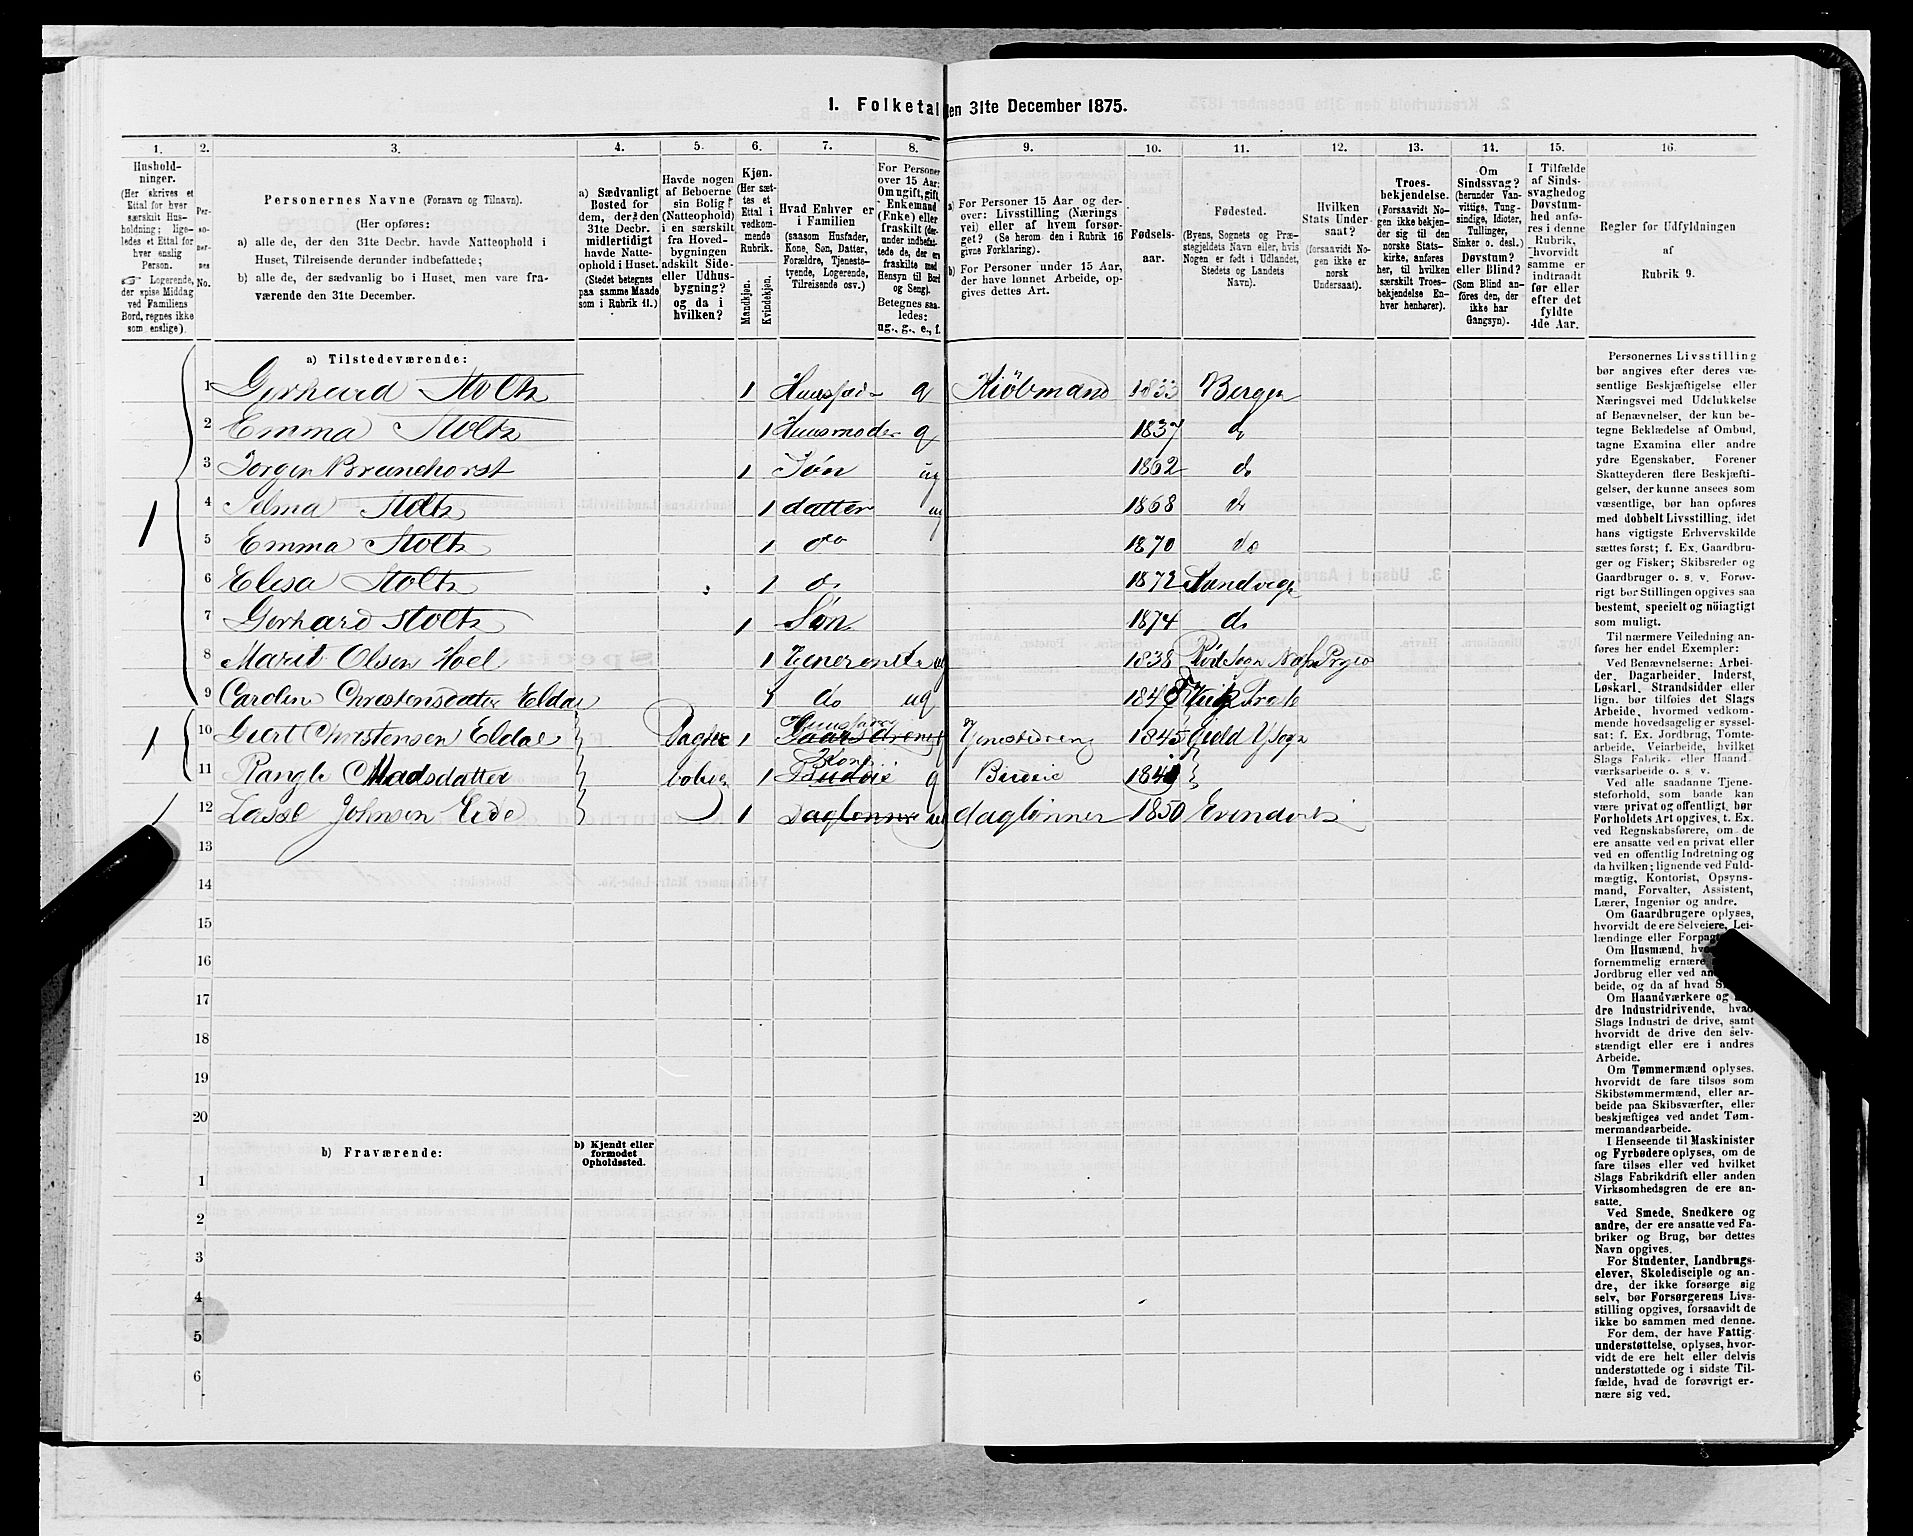 1. Folketal den 31te December 1875.
1.
Hushold-
ninger.
(Her skrives et
Ettal for hver
særskilt Hus-
holdning; lige-
ledes et Ettal for
hver enslig
Person.
Logerende,
der spise Middag
ved Familiens
Bord, regnes ikke
som enslige).
2.
Per-
so-
ner-
nes
No.
3.
Personernes Navne (Fornavn og Tilnavn).
(Her opføres:
a) alle de, der den 31te Decbr. havde Natteophold i
Huset, Tilreisende derunder indbefattede;
b) alle de, der sædvanlig bo i Huset, men vare fra-
værende den 31te December.
4.
a) Sædvanligt
Bosted for
dem, der den
31te Decbr.
midlertidigt
havde Natte-
ophold i Huset.
(Stedet betegnes
paa samme Maade
som i Rubrik 11.)
5.
Havde nogen
af Beboerne
sin Bolig
(Natteophold)
i en særskilt
fra Hoved-
bygningen
adskilt Side-
eller Udhus-
bygning?
og da i
hvilken?
6.
Kjøn.
(Her sæt-
tes et
Ettal i
vedkom-
mende
Rubrik.
Mandkjøn.
Kvindekjøn.
7.
Hvad Enhver er
i Familien
(saasom Husfader,
Kone, Søn, Datter,
Forældre, Tjeneste-
tyende, Logerende,
Tilreisende osv.)
8.
For Personer
over 15 Aar:
Om ugift, gift,
Enkemand
(Enke) eller
fraskilt (der-
under indbefat-
tede de, der ere
fraskilte med
Hensyn til Bord
og Seng).
Betegnes saa-
ledes:
ug., g., e., f.
9.
a) For Personer 15 Aar og der-
over: Livsstilling (Nærings-
vei) eller af hvem forsør-
get? (Se herom den i Rubrik 16
givne Forklaring).
b) For Personer under 15 Aar,
der have lønnet Arbeide, op-
gives dettes Art.
10.
Fødsels-
aar.
11.
Fødested.
(Byens, Sognets og Præ-
stegjeldets Navn eller, hvis
Nogen er født i Udlandet,
Stedets og Landets
Navn).
12.
Hvilken
Stats Under-
saat?
(forsaavidt No-
gen ikke er
norsk
Undersaat).
13.
Troes-
bekjendelse.
(Forsaavidt No-
gen ikke bekjen-
der sig til den
norske Stats-
kirke, anføres
her, til hvilken
særskilt Troes-
bekjendelse En-
hver henhører).
14.
Om
Sindssvag?
(herunder Van-
vittige, Tung-
sindige, Idioter,
Sinker o. desl.)
Døvstum?
eller Blind?
(Som Blind an-
føres den, der
ikke har
Gangsyn).
15.
I Tilfælde
af Sinds-
svaghed og
Døvstum-
hed anfø-
res i denne
Rubrik,
hvorvidt
samme er
indtraadt
før eller
efter det
fyldte
4de Aar.
16.
Regler for Udfyldningen
af
Rubrik 9.
a) Tilstedeværende:
1 1 Gerhard Stoltz 1 Huusfader g Kiøbmand 1833 Bergen
2 Emma Stoltz 1 Huusmoder g 1837 do
3 Jørgen Brunchorst 1 Søn ug 1862 do
4 Selma Stoltz 1 datter ug 1868 do
5 Emma Stoltz 1 do 1870 do
6 Elisa Stoltz 1 do 1872 Sandvigen
7 Gerhard Stoltz 1 Søn 1874 do
8 Marit Olsen Hoel 1 ug 1838
9 Carolin Christensdatter Eldal 1 do ug
1 10 Giert Christensen Eldal 1 Huusfader Gaardsdreng Tjenestedreng 1845
11 Rangle Madsdatter 1 Kone g
1 12 Lasse Johnsen Eide 1 Dagлønner ug daglønner 1850 Evindvik
13
14
15
16
17
18
19
20
b) Fraværende:
b) Kjendt eller
formodet
Opholdssted.
1
2
3
4
5
6
Personernes Livsstilling
bør angives efter deres væ-
sentlige Beskjæftigelse eller
Næringsvei med Udelukkelse
af Benævnelser, der kun be-
tegne Beklædelse af Ombud,
tagne Examina eller andre
ydre Egenskaber. Forener
Skatteyderen flere Beskjæfti-
gelser, der kunne ansees som
væsentlige, bør han opføres
med dobbelt Livsstilling, idet
hans vigtigste Erhvervskilde
sættes først; f. Ex. Gaardbru-
ger og Fisker; Skibsreder og
Gaardbruger o. s. v. Forøv-
rigt bør Stillingen opgives saa
bestemt, specielt og nöiagtigt
som muligt.
Til nærmere Veiledning an-
føres her endel Exempler:
Ved Benævnelserne: Arbei-
der, Dagarbeider, Inderst,
Løskarl, Strandsidder eller
lign. bør tilføies det Slags
Arbeide, hvormed vedkom-
mende hovedsagelig er syssel-
sat; f. Ex. Jordbrug, Tømte-
arbeide, Veiarbeide, hvilket
Slags Fabrik- eller Haand-
værksarbeide o. s. v.
Ved alle saadanne Tjene-
steforhold, som baade kan
være privat og offentligt, bør
Forholdets Art opgives, t. Ex.
ved Regnskabsførere, om de
ere ansatte ved en privat eller
ved en offentlig Indretning og
da hvilken; lignende ved Fuld-
mægtig, Kontorist, Opsyns-
mand, Forvalter, Assistent,
Lærer, Ingeniør og andre.
Om Gaardbrugere oplyses,
hvorvidt de ere Selveiere, Lei-
lændinge eller
Om Husmænd,
fornemmelig ernære
Jordbrug eller ved
beide, og da af hvad
Om Haandværkere og
dre Industridrivende, hvad
Slags Industri de drive, samt
hvorvidt de drive den selv-
stændigt eller ere i andres
Arbeide.
Om Tømmermænd oplyses,
hvorvidt de fare tilsøs som
Skibstømmermænd, eller ar-
beide paa Skibsværfter, eller
beskjæftiges ved andet Tøm-
mermandsarbeide.
I Henseende til Maskinister
og Fyrbødere oplyses, om de
fare tilsøs eller ved hvilket
Slags Fabrikdrift eller anden
Virksomhedsgren de ere an-
satte.
Ved Smede, Snedkere og
andre, der ere ansatte ved Fa-
briker og Brug, bør dettes
Navn opgives.
For Studenter, Landbrugs-
elever, Skoledisciple og an-
dre, der ikke forsørge sig
selv, bør Forsørgerens Livs-
stilling opgives, forsaavidt de
ikke bo sammen med denne.
For dem, der have Fattig-
understøttelse, oplyses, hvor-
vidt de ere helt eller delvis
understøttede og i sidste Til-
fælde, hvad de forøvrigt er-
nære sig ved.